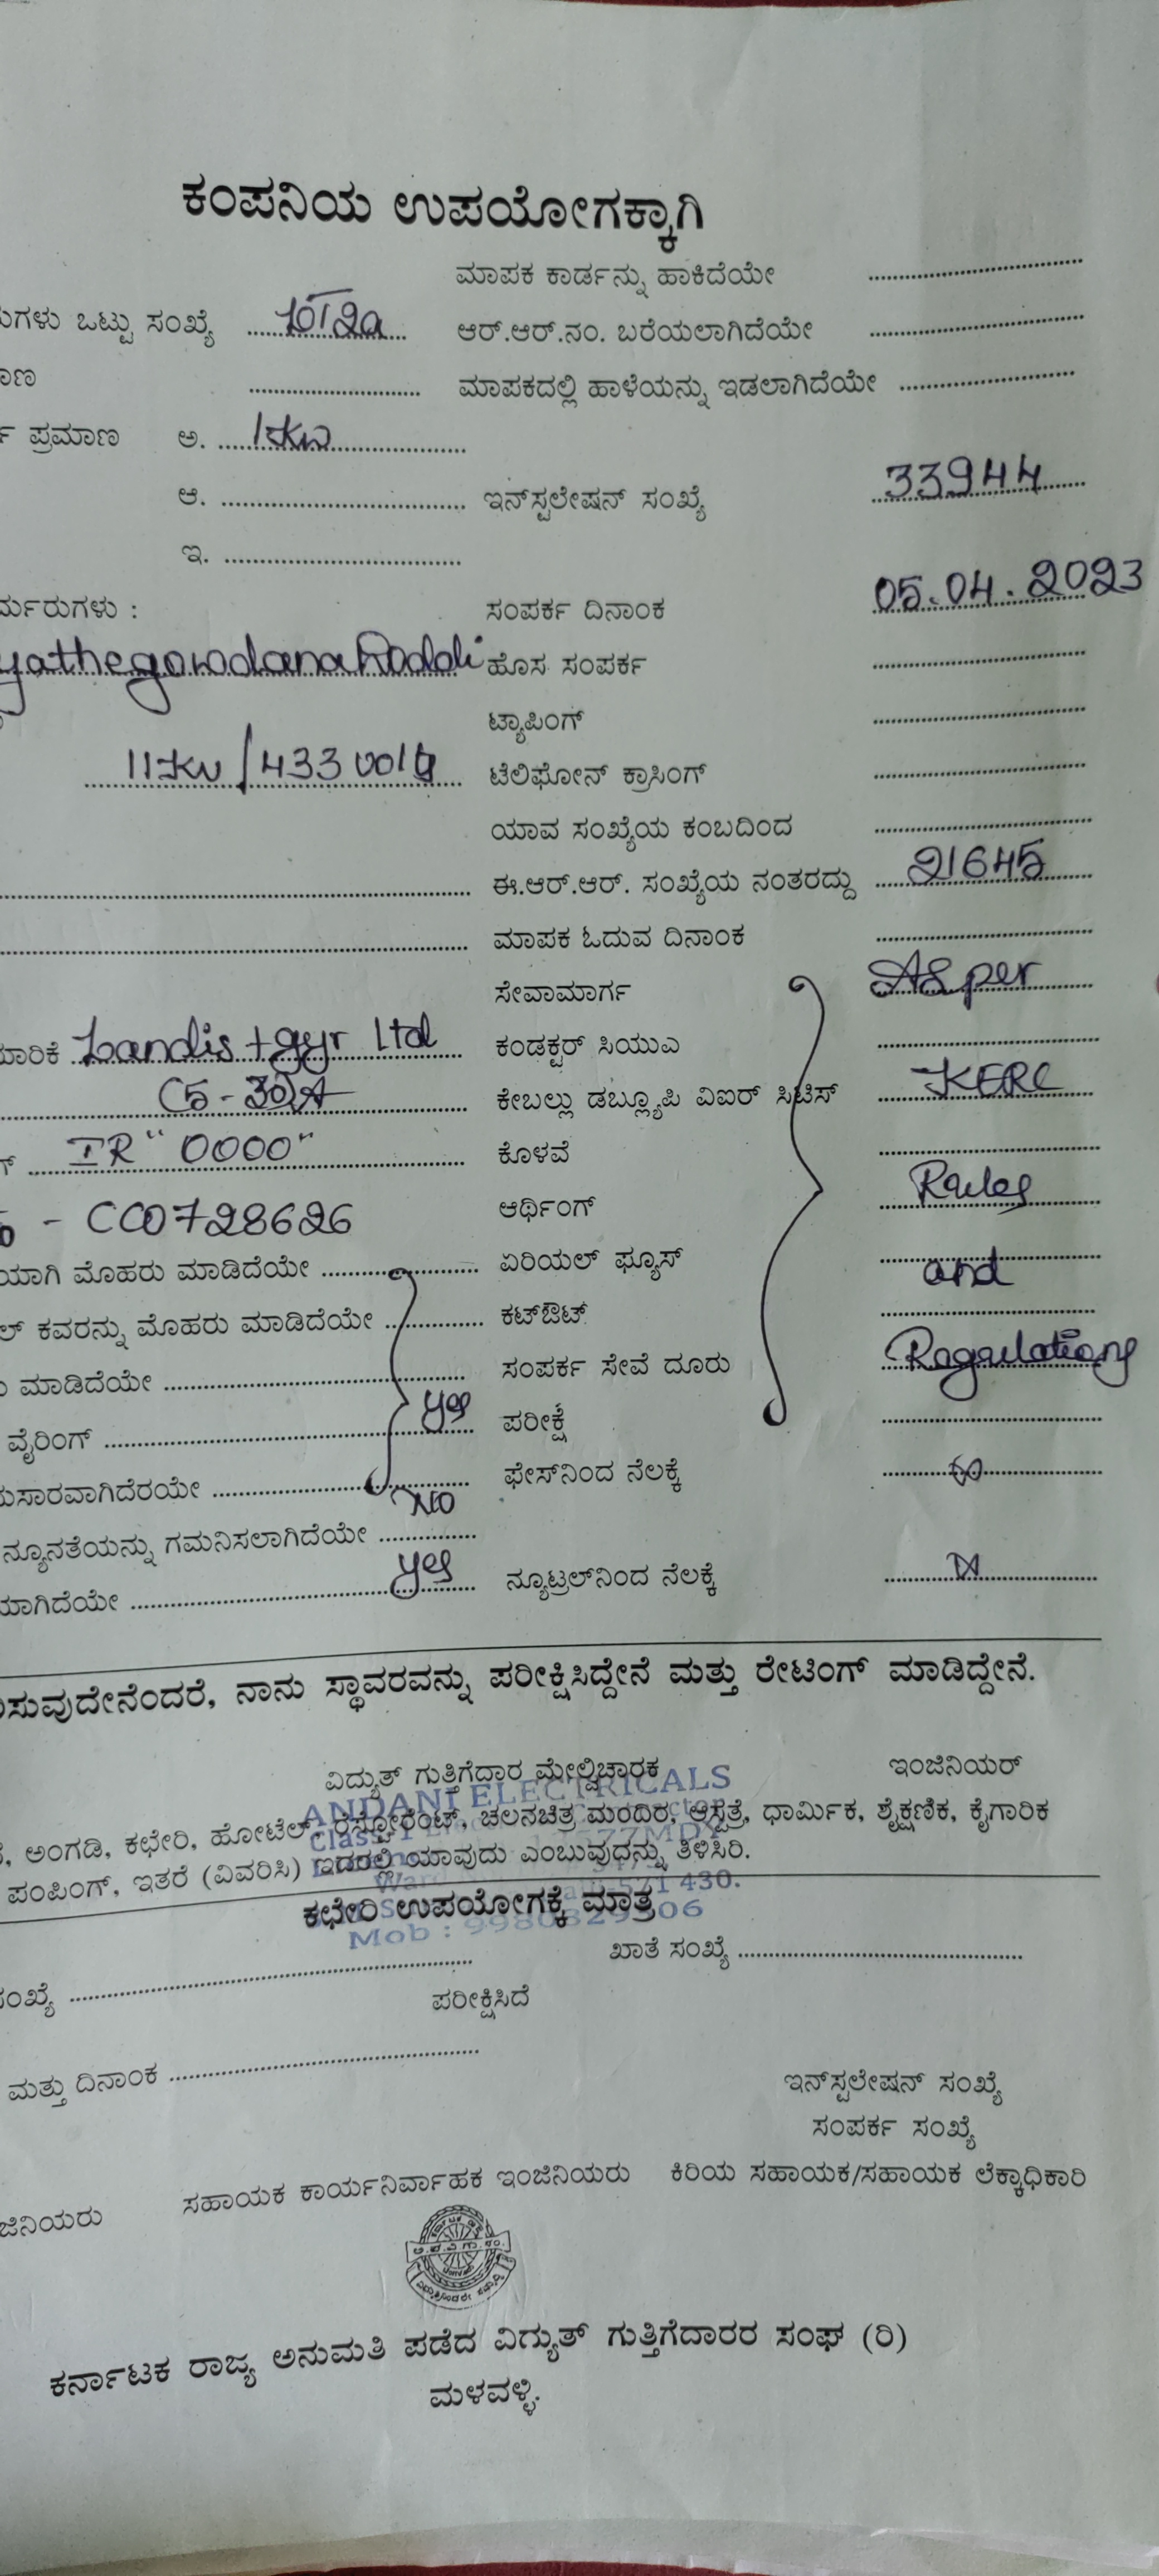 ಕಂಪನಿಯ ಉಪಯೋಗಕ್ಕಾಗಿ
ಮಾಪಕ ಕಾರ್ಡನ್ನು ಹಾಕಿದೆಯೇ
ಒಟ್ಟು ಸಂಖ್ಯೆ ಆರ್.ಆರ್.ನಂ. ಬರೆಯಲಾಗಿದೆಯೇ
ಮಾಪಕದಲ್ಲಿ ಹಾಳೆಯನ್ನು ಇಡಲಾಗಿದೆಯೇ
ಪ್ರಮಾಣ ಅ. 1KW
ಆ. ಇನ್‌ಸ್ಟಲೇಷನ್ ಸಂಖ್ಯೆ 33944
ಇ.
ಸಂಪರ್ಕ ದಿನಾಂಕ 05.04.2023
ಹೊಸ ಸಂಪರ್ಕ
ಟ್ಯಾಪಿಂಗ್
11KV/433 volts ಟೆಲಿಫೋನ್ ಕ್ರಾಸಿಂಗ್
ಯಾವ ಸಂಖ್ಯೆಯ ಕಂಬದಿಂದ
ಈ.ಆರ್.ಆರ್. ಸಂಖ್ಯೆಯ ನಂತರದ್ದು 21645
ಮಾಪಕ ಓದುವ ದಿನಾಂಕ
ಸೇವಾಮಾರ್ಗ As per
Landis + gyr Ltd ಕಂಡಕ್ಟರ್ ಸಿಯುಎ
(5-30)A ಕೇಬಲ್ಲು ಡಬ್ಲ್ಯೂಪಿ ವಿಐರ್ ಸಿಟಿಸ್ KERC
IR "0000" ಕೊಳವೆ
- CC0728626 ಆರ್ಥಿಂಗ್ Rules
ಮೊಹರು ಮಾಡಿದೆಯೇ ಏರಿಯಲ್ ಫ್ಯೂಸ್ and
ಕವರನ್ನು ಮೊಹರು ಮಾಡಿದೆಯೇ ಕಟ್‌ಔಟ್
ಮಾಡಿದೆಯೇ ಸಂಪರ್ಕ ಸೇವೆ ದೂರು Regulations
ವೈರಿಂಗ್ yes ಪರೀಕ್ಷೆ
ಫೇಸ್‌ನಿಂದ ನೆಲಕ್ಕೆ
ನ್ಯೂನತೆಯನ್ನು ಗಮನಿಸಲಾಗಿದೆಯೇ No
yes ನ್ಯೂಟ್ರಲ್‌ನಿಂದ ನೆಲಕ್ಕೆ
ನಾನು ಸ್ಥಾವರವನ್ನು ಪರೀಕ್ಷಿಸಿದ್ದೇನೆ ಮತ್ತು ರೇಟಿಂಗ್ ಮಾಡಿದ್ದೇನೆ.
ವಿದ್ಯುತ್ ಗುತ್ತಿಗೆದಾರ ಮೇಲ್ವಿಚಾರಕ ಇಂಜಿನಿಯರ್
ANDANI ELECTRICALS
ಅಂಗಡಿ, ಕಛೇರಿ, ಹೋಟೆಲ್, ರೆಸ್ಟೋರೆಂಟ್, ಚಲನಚಿತ್ರ ಮಂದಿರ, ಆಸ್ಪತ್ರೆ, ಧಾರ್ಮಿಕ, ಶೈಕ್ಷಣಿಕ, ಕೈಗಾರಿಕ
ಪಂಪಿಂಗ್, ಇತರೆ (ವಿವರಿಸಿ) ಇದರಲ್ಲಿ ಯಾವುದು ಎಂಬುವುಧನ್ನು ತಿಳಿಸಿರಿ.
ಕಛೇರಿ ಉಪಯೋಗಕ್ಕೆ ಮಾತ್ರ
ಖಾತೆ ಸಂಖ್ಯೆ
ಪರೀಕ್ಷಿಸಿದೆ
ಮತ್ತು ದಿನಾಂಕ
ಇನ್‌ಸ್ಟಲೇಷನ್ ಸಂಖ್ಯೆ
ಸಂಪರ್ಕ ಸಂಖ್ಯೆ
ಸಹಾಯಕ ಕಾರ್ಯನಿರ್ವಾಹಕ ಇಂಜಿನಿಯರು ಕಿರಿಯ ಸಹಾಯಕ/ಸಹಾಯಕ ಲೆಕ್ಕಾಧಿಕಾರಿ
ಕರ್ನಾಟಕ ರಾಜ್ಯ ಅನುಮತಿ ಪಡೆದ ವಿದ್ಯುತ್ ಗುತ್ತಿಗೆದಾರರ ಸಂಘ (ರಿ)
ಮಳವಳ್ಳಿ.